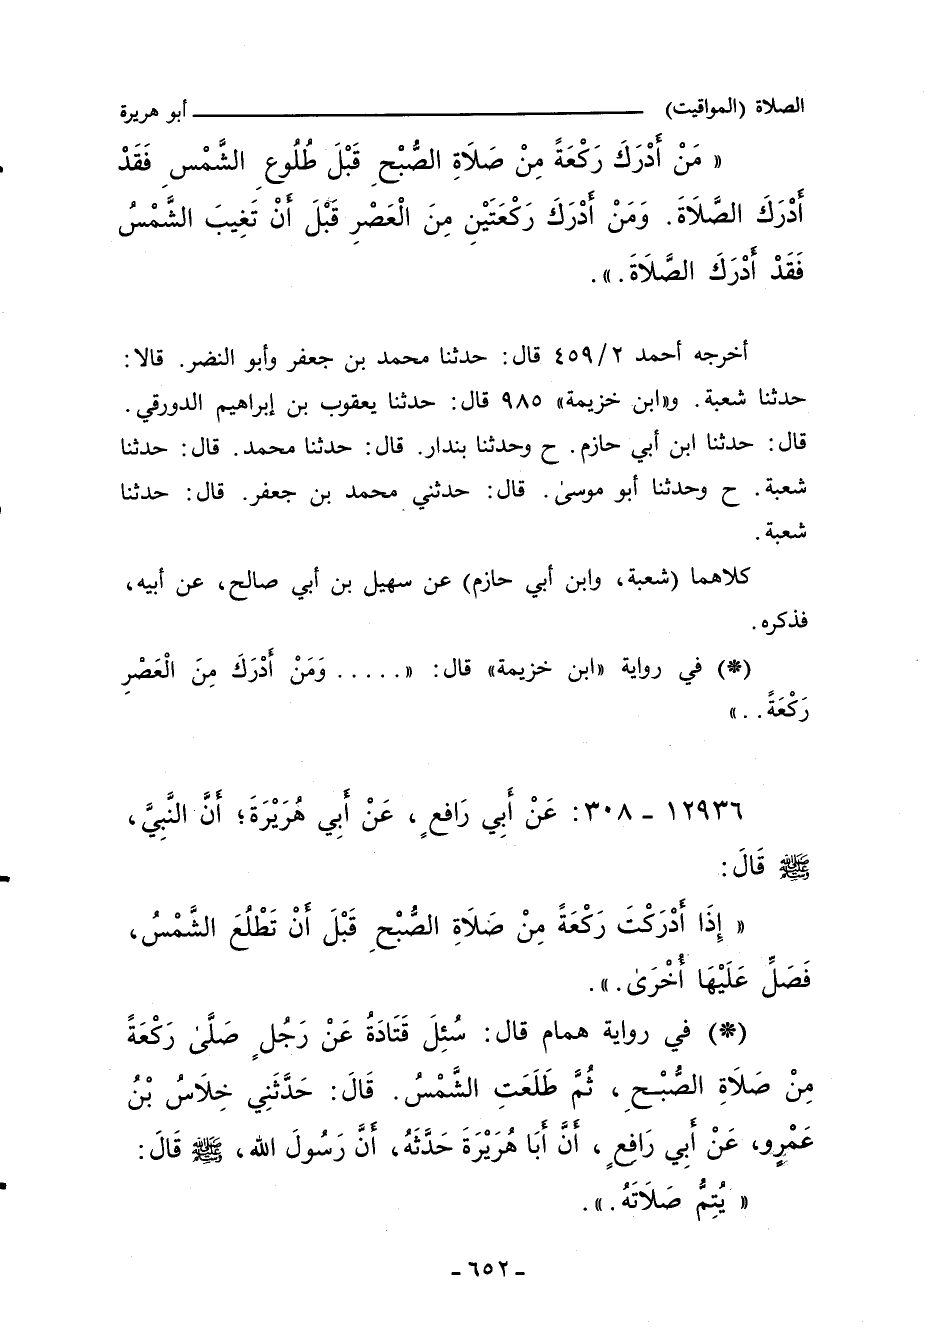 الصلاة (المواقيت) ــــــــــــــــــــ أبو هريرة
« مَنْ أَدْرَكَ رَكْعَةً مِنْ صَلَاةِ الصُّبْحِ قَبْلَ طُلُوعِ الشَّمْسِ فَقَدْ
أَدْرَكَ الصَّلَاةَ. وَمَنْ أَدْرَكَ رَكْعَتَيْنِ مِنَ الْعَصْرِ قَبْلَ أَنْ تَغِيبَ الشَّمْسُ
فَقَدْ أَدْرَكَ الصَّلَاةَ.».
أخرجه أحمد ٤٥٩/٢ قال: حدثنا محمد بن جعفر وأبو النضر. قالا:
حدثنا شعبة. و«ابن خزيمة» ٩٨٥ قال: حدثنا يعقوب بن إبراهيم الدورقي.
قال: حدثنا ابن أبي حازم. ح وحدثنا بندار. قال: حدثنا محمد. قال: حدثنا
شعبة. ح وحدثنا أبو موسىٰ. قال: حدثني محمد بن جعفر. قال: حدثنا
شعبة.
كلاهما (شعبة، وابن أبي حازم) عن سهيل بن أبي صالح، عن أبيه،
فذكره.
(*) في رواية «ابن خزيمة» قال: «..... وَمَنْ أَدْرَكَ مِنَ الْعَصْرِ
رَكْعَةً..»
١٢٩٣٦ - ٣٠٨: عَنْ أَبِي رَافِعٍ، عَنْ أَبِي هُرَيْرَةَ؛ أَنَّ النَّبِيَّ،
ﷺ قَالَ:
« إِذَا أَدْرَكْتَ رَكْعَةً مِنْ صَلَاةِ الصُّبْحِ قَبْلَ أَنْ تَطْلُعَ الشَّمْسُ،
فَصَلِّ عَلَيْهَا أُخْرَىٰ.».
(*) في رواية همام قال: سُئِلَ قَتَادَةُ عَنْ رَجُلٍ صَلَّىٰ رَكْعَةً
مِنْ صَلَاةِ الصُّبْحِ، ثُمَّ طَلَعَتِ الشَّمْسُ. قَالَ: حَدَّثَنِي خِلَاسُ بْنُ
عَمْرٍو، عَنْ أَبِي رَافِعٍ، أَنَّ أَبَا هُرَيْرَةَ حَدَّثَهُ، أَنَّ رَسُولَ الله، ﷺ قَالَ:
« يُتِمُّ صَلَاتَهُ.».
- ٦٥٢ -